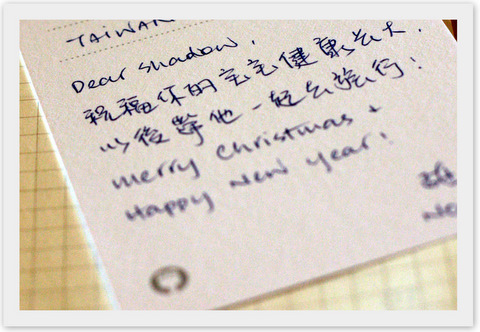 TAIWAN
Dear Shadow,
祝福你的宝宝健康长大,
以後帶他一起去旅行!
merry christmas +
Happy New year!
NO